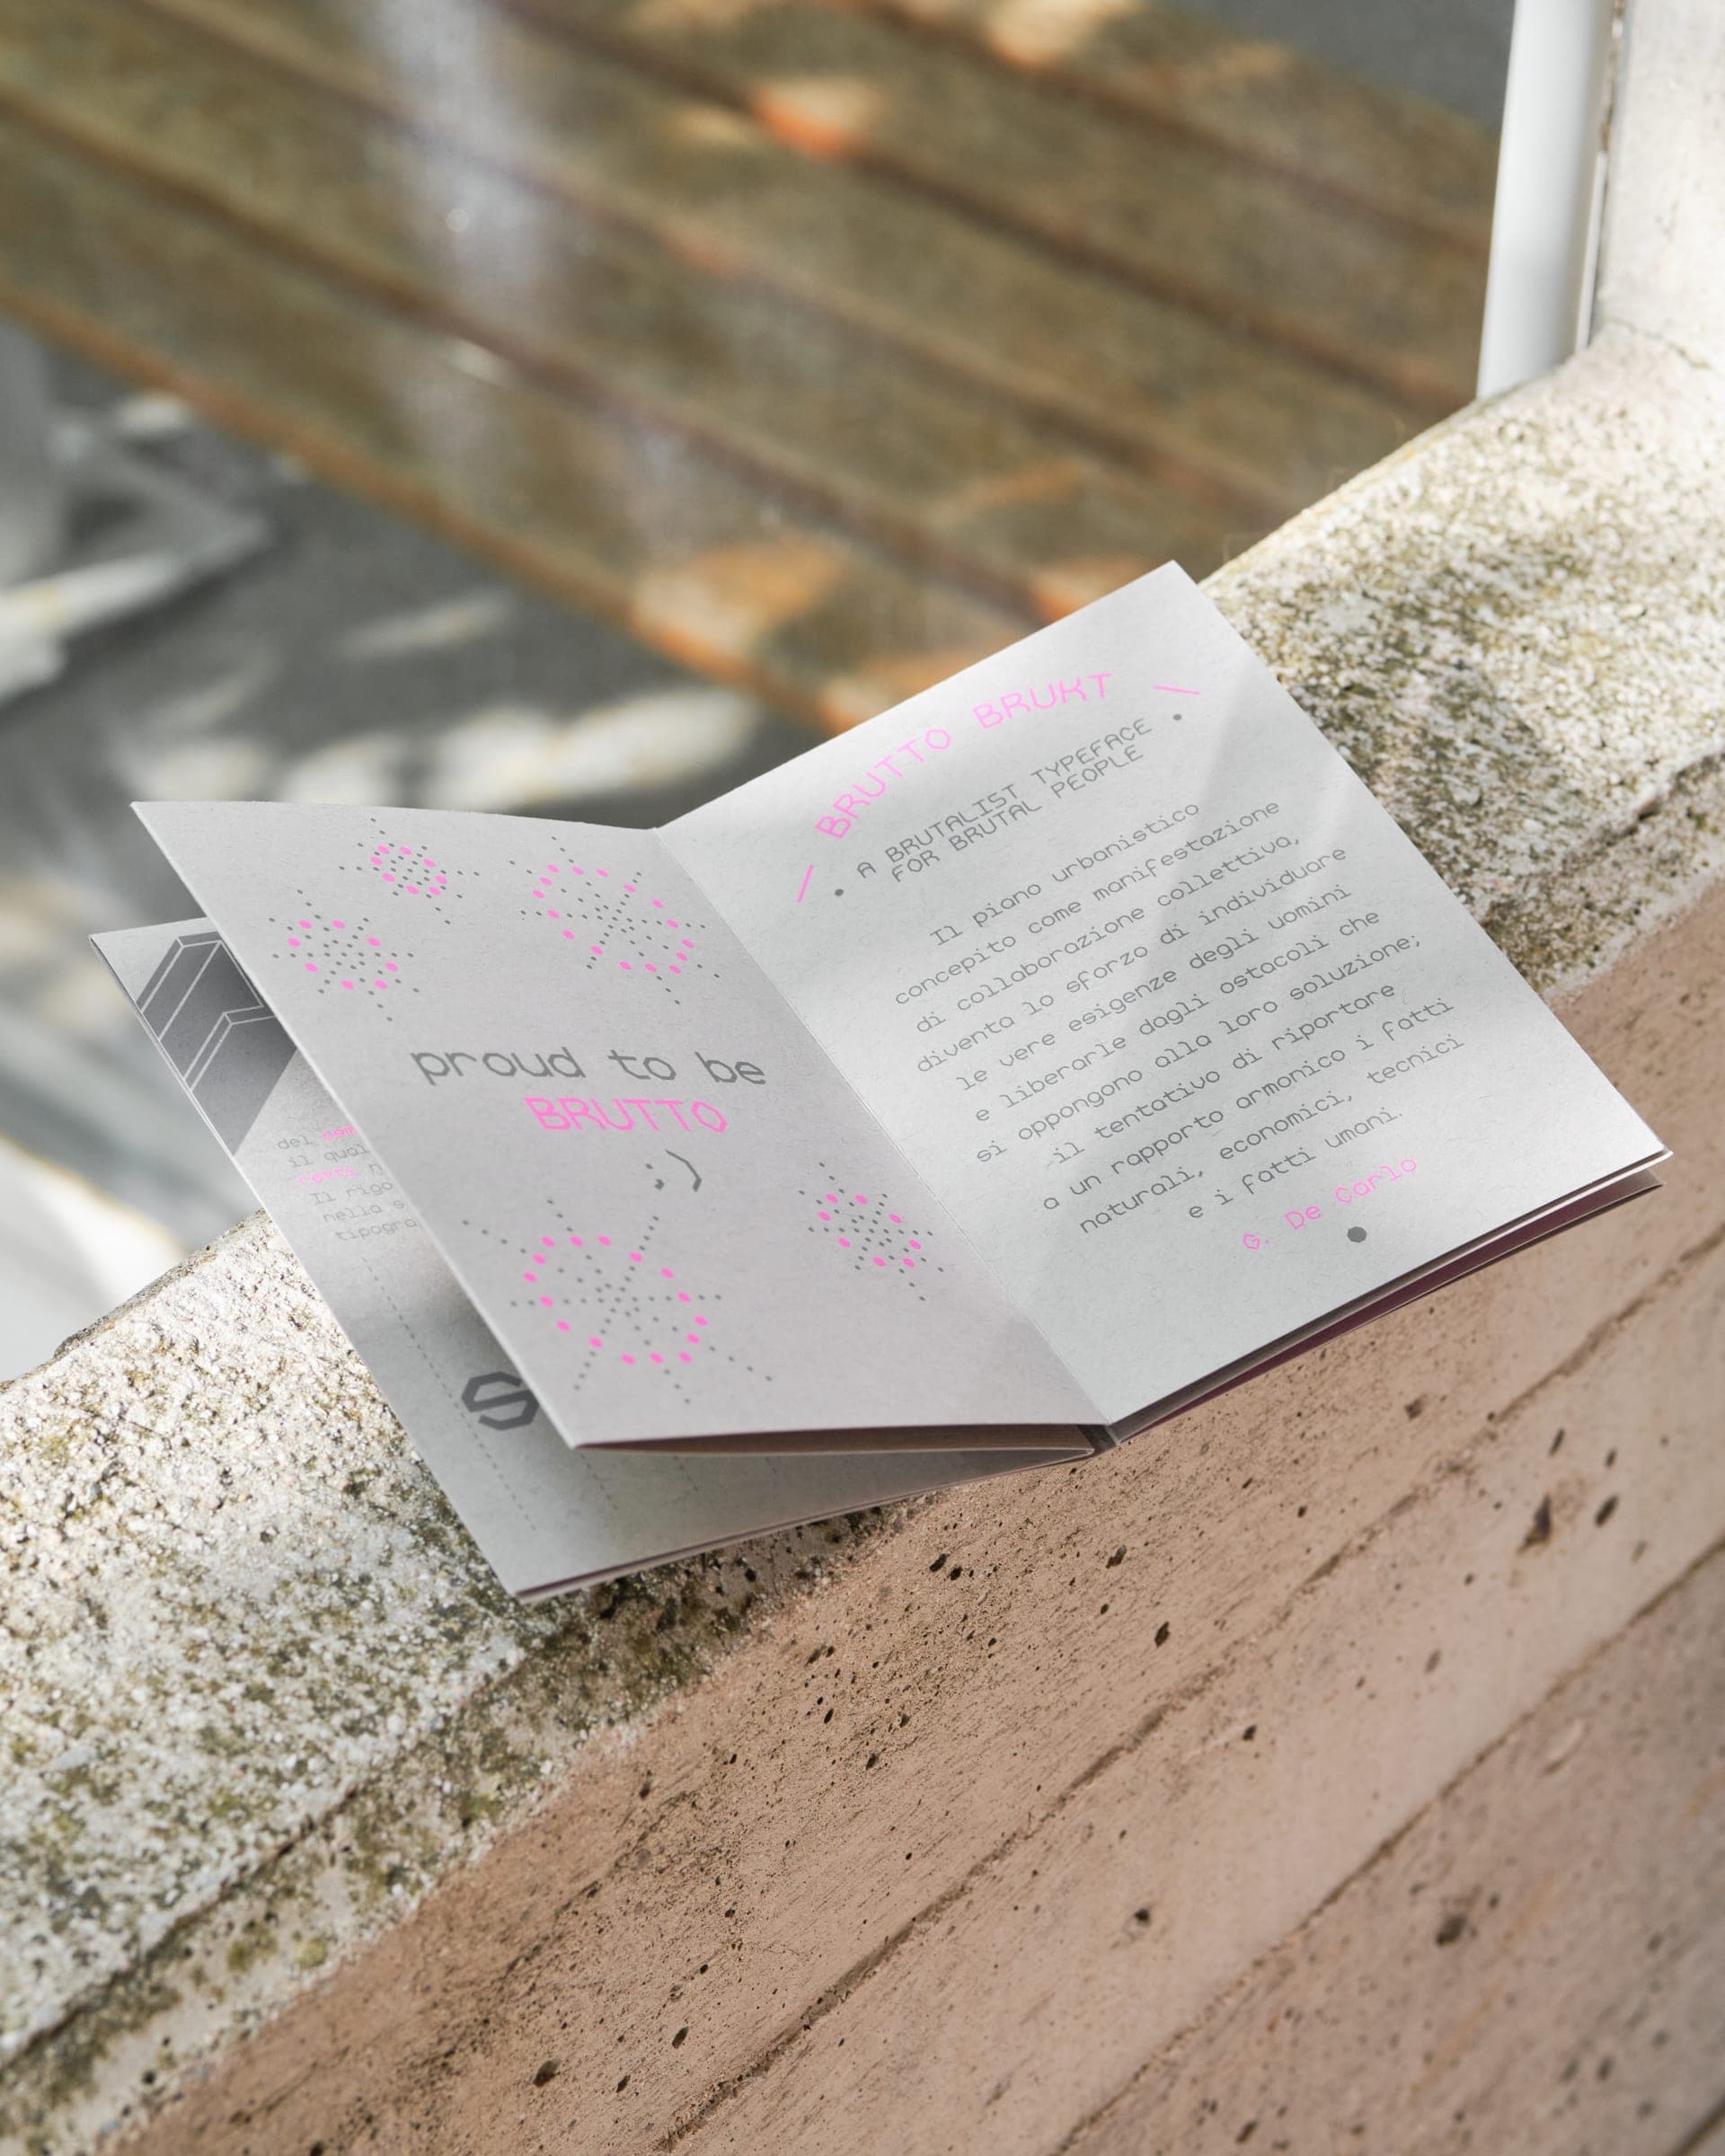 proud to be
BRUTTO
;)
BRUTTO BRUKT
A BRUTALIST TYPEFACE
FOR BRUTAL PEOPLE
Il piano urbanistico
concepito come manifestazione
di collaborazione collettiva,
diventa lo sforzo di individuare
le vere esigenze degli uomini
e liberarle dagli ostacoli che
si oppongono alla loro soluzione;
il tentativo di riportare
a un rapporto armonico i fatti
naturali, economici, tecnici
e i fatti umani.
G. De Carlo
il
Il
nella
S